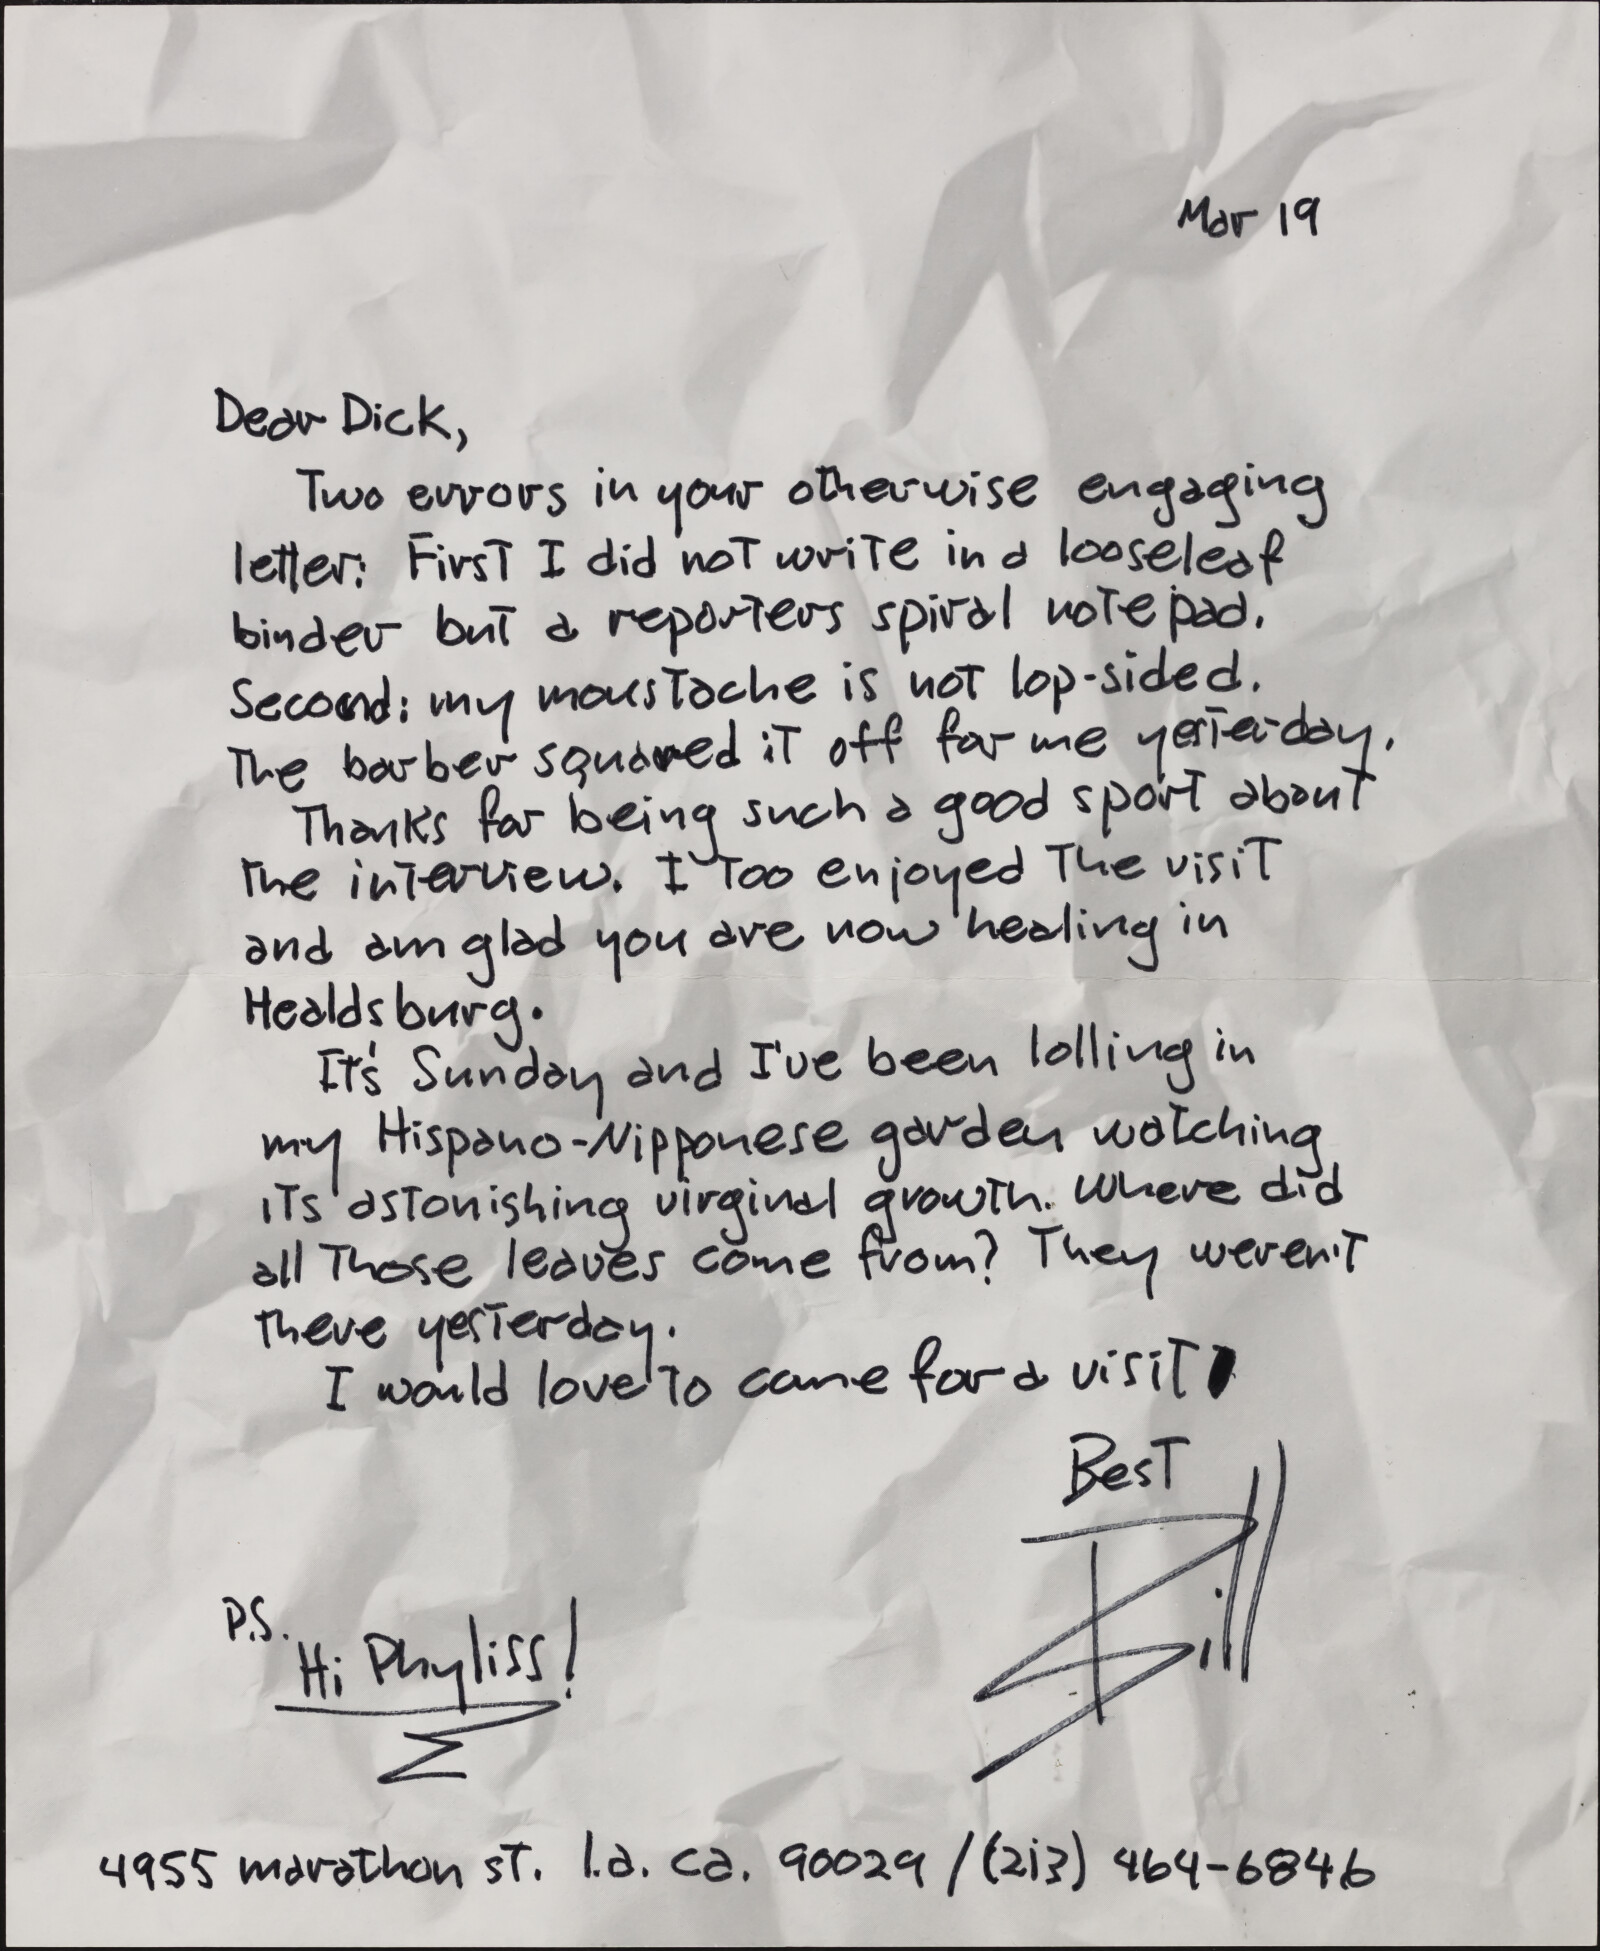 Mar 19
Dear Dick,
Two errors in your otherwise engaging
letter: First I did not write in a looseleaf
binder but a reporters spiral note pad.
Second: my moustache is not lop-sided.
The barber squared it off for me yesterday.
Thanks for being such a good sport about
the interview. I too enjoyed the visit
and am glad you are now healing in
Healdsburg.
It's Sunday and I've been lolling in
my Hispano-Nipponese garden watching
its astonishing virginal growth. Where did
all those leaves come from? They weren't
there yesterday.
I would love to come for a visit
Best
Bill
P.S.
Hi Phyliss!
4955 marathon st. l.a. ca. 90029 / (213) 464-6846